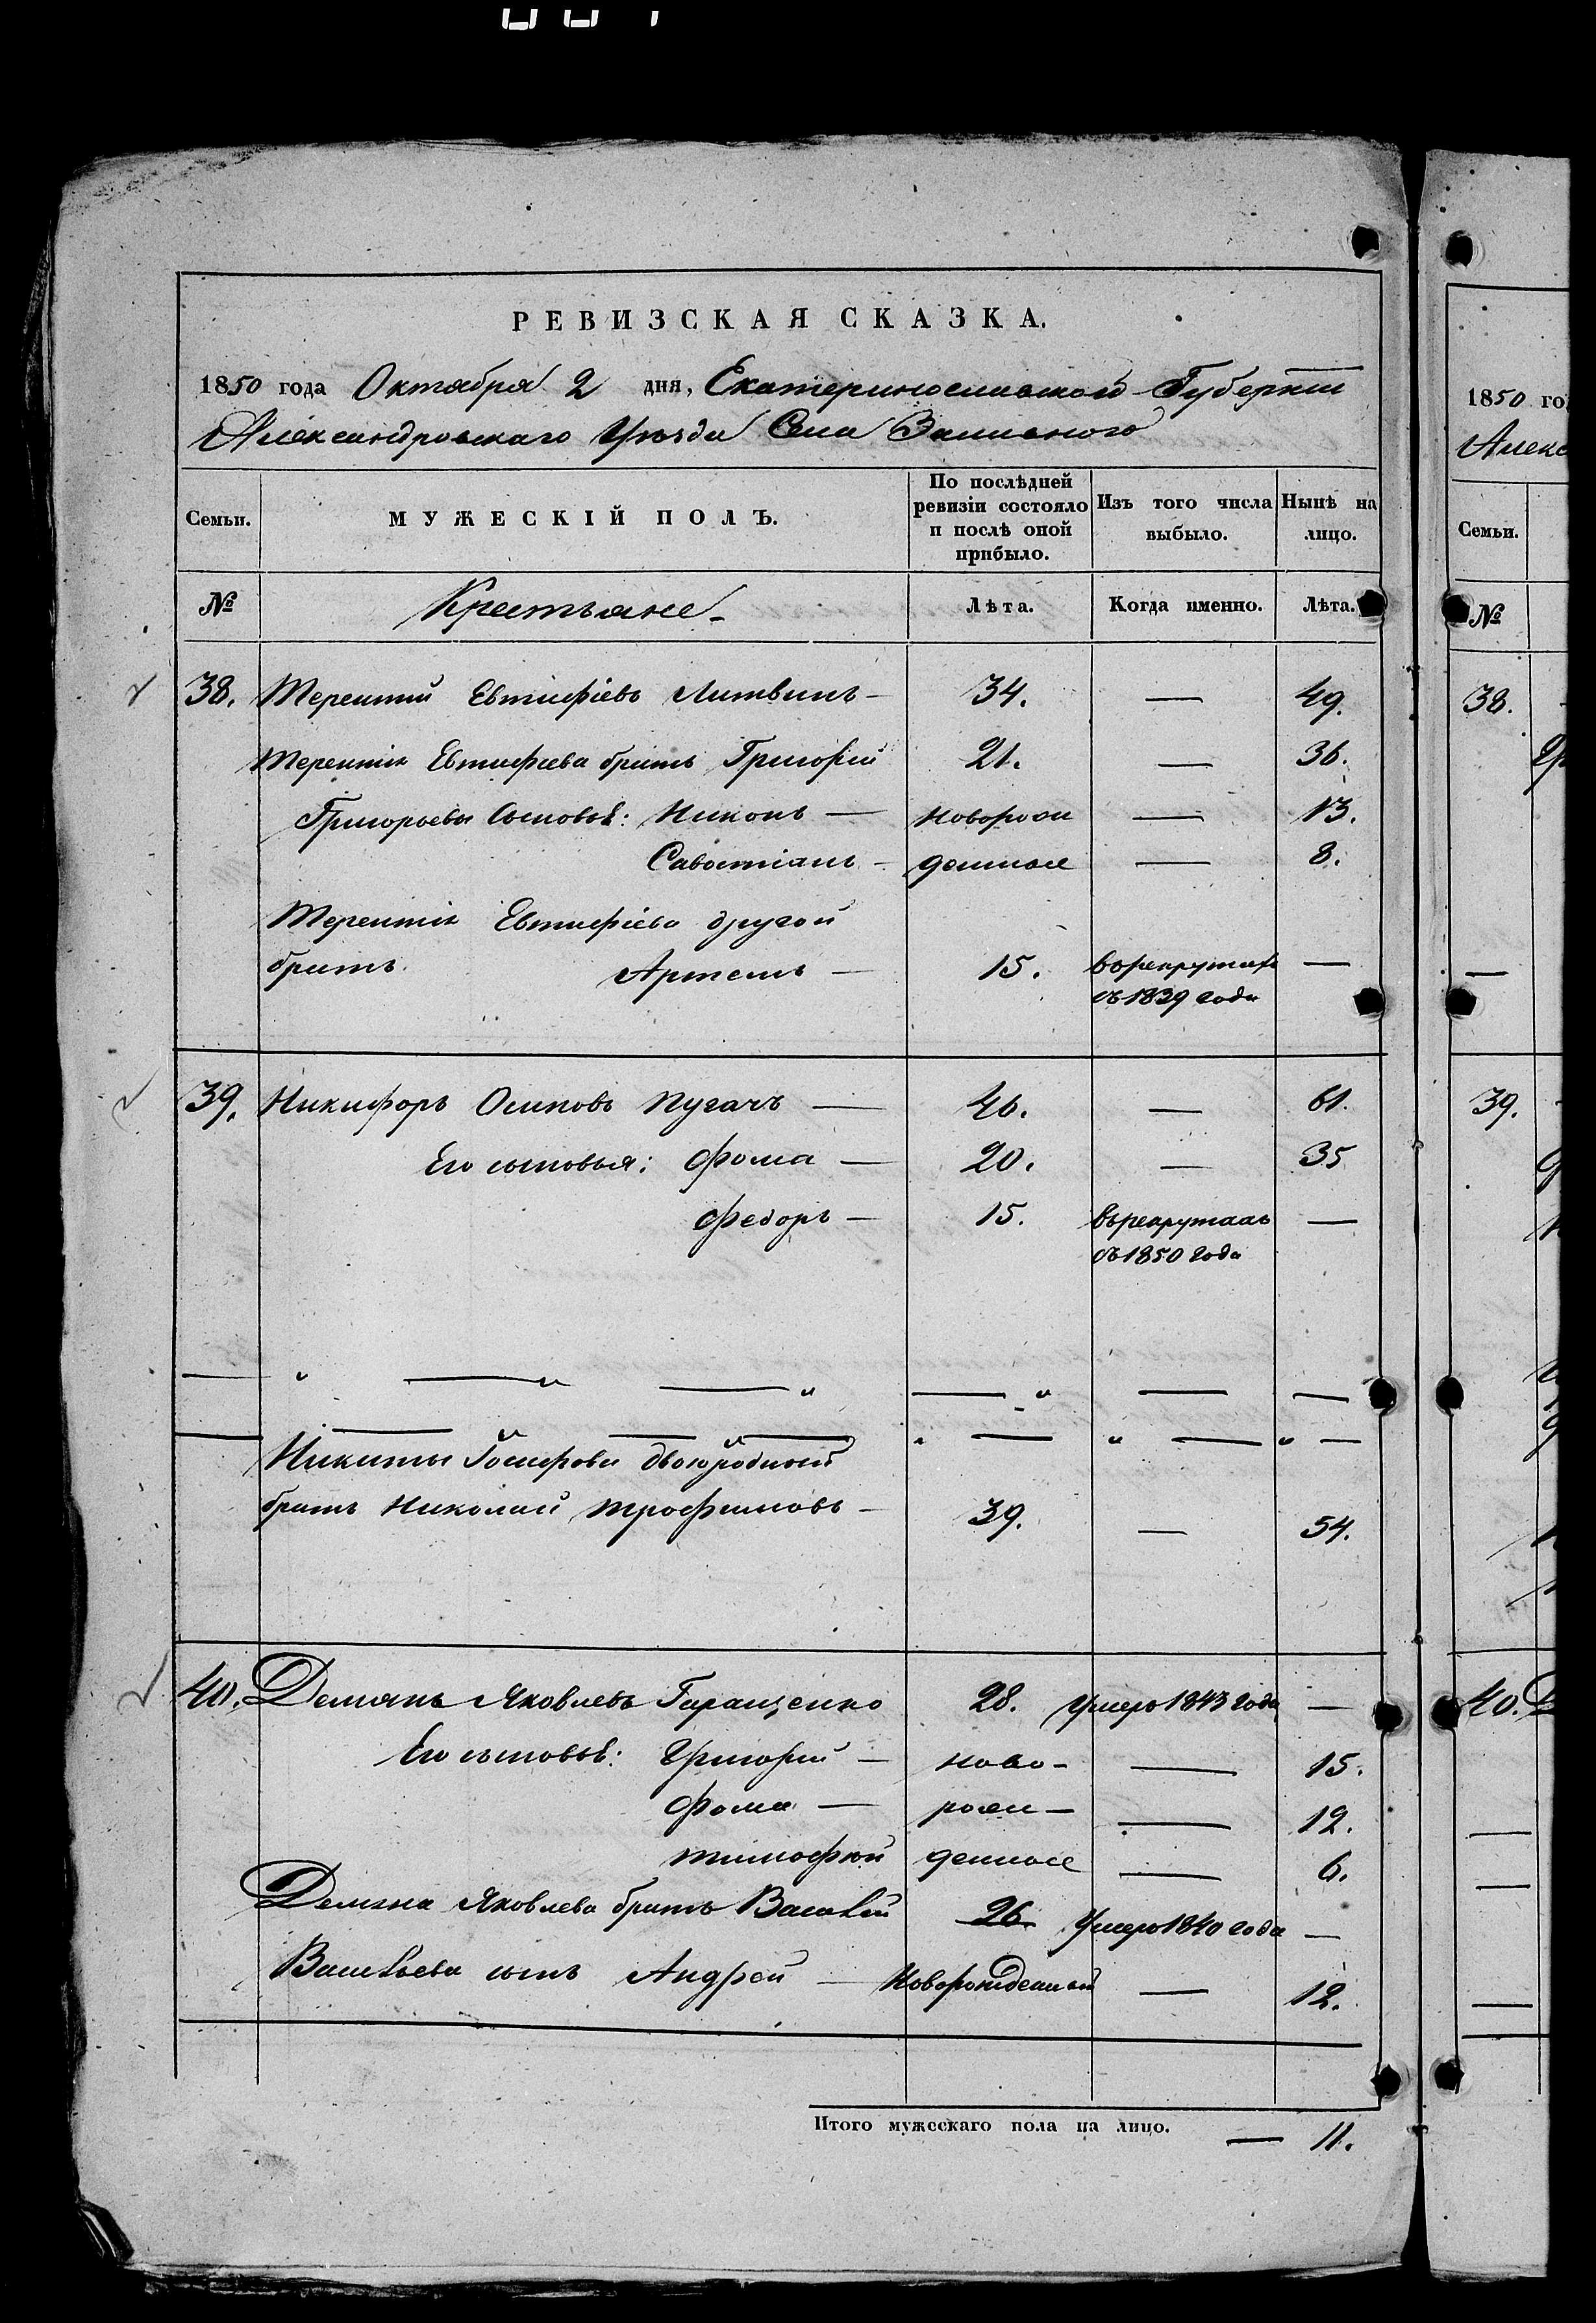 РЕВИЗСКАЯ СКАЗКА.
1850 года Октября 2 дня, Екатеринославской Губернии
Александровскаго Уѣзда Села Заливного
Семьи.
МУЖЕСКІЙ ПОЛЪ.
По послѣдней ревизіи состояло и послѣ оной прибыло.
Изъ того числа выбыло.
Нынѣ на лицо.
№ Крестьяне Лѣта. Когда именно. Лѣта.
38. Терентий Евтифіевъ Литвинъ — 34. — 49.
Терентія Евтифіева братъ Григорій 21. — 36.
Григорьевы Сыновья: Никонъ — Новорож — 13.
Савостіанъ — денные — 8.
Терентія Евтифіева другой
братъ Артемъ — 15. въ рекрутахъ —
съ 1839 года
39. Никифоръ Осиповъ Пугачъ — 46. — 61.
Его сыновья: Фома — 20. — 35
Федоръ — 15. въ рекрутахъ —
съ 1850 года
Никиты Іосифова двоюродный
братъ Николай Трофимовъ — 39. — 54.
40. Демянъ Яковлевъ Гаращенко 28. Умеръ 1843 года —
Его сыновья: Григорий — ново- — 15.
Фома — рож- — 12.
Тимофей денные — 6.
Демяна Яковлева братъ Василій 26. Умеръ 1840 года —
Васильева сынъ Андрей — Новорожденный — 12.
Итого мужескаго пола на лицо. — 11.
1850 го
Алекс
Семьи.
№
38.
39.
40. Д